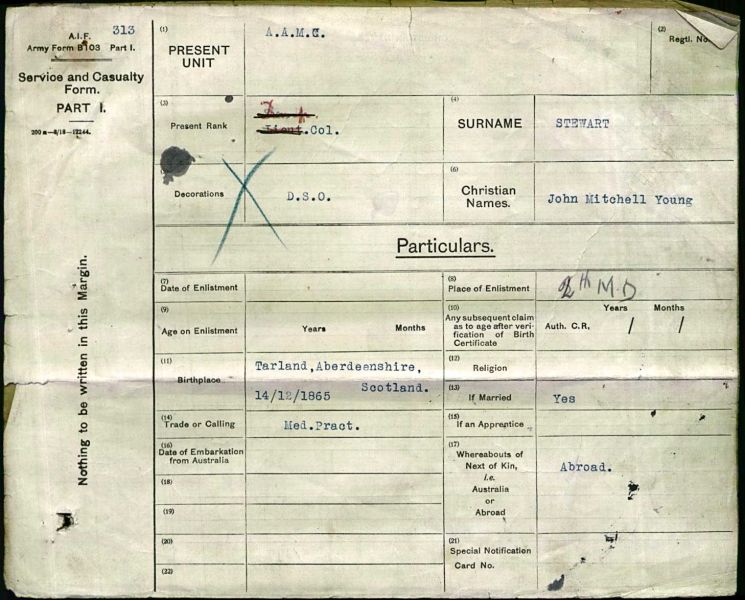 A.I.F. 313
Army Form B103 Part I.
Service and Casualty
Form.
PART I.
200 m—8/18—12244.
Nothing to be written in this Margin.
(1)
PRESENT
UNIT
A.A.M.C.
(2)
Regtl. No.
(3)
Present Rank
Lieut.Col.
(4)
SURNAME
STEWART
Decorations
D.S.O.
(6)
Christian
Names.
John Mitchell Young
Particulars.
(7)
Date of Enlistment
(8)
Place of Enlistment
2th M.D
(9)
Age on Enlistment
Years Months
(10)
Any subsequent claim
as to age after veri-
fication of Birth
Certificate
Years Months
Auth. C.R. / /
(11)
Birthplace
Tarland,Aberdeenshire,
Scotland.
14/12/1865
(12)
Religion
(13)
If Married
Yes
(14)
Trade or Calling
Med.Pract.
(15)
If an Apprentice
(16)
Date of Embarkation
from Australia
(17)
Whereabouts of
Next of Kin,
i.e.
Australia
or
Abroad
Abroad.
(18)
(19)
(20)
(21)
Special Notification
Card No.
(22)